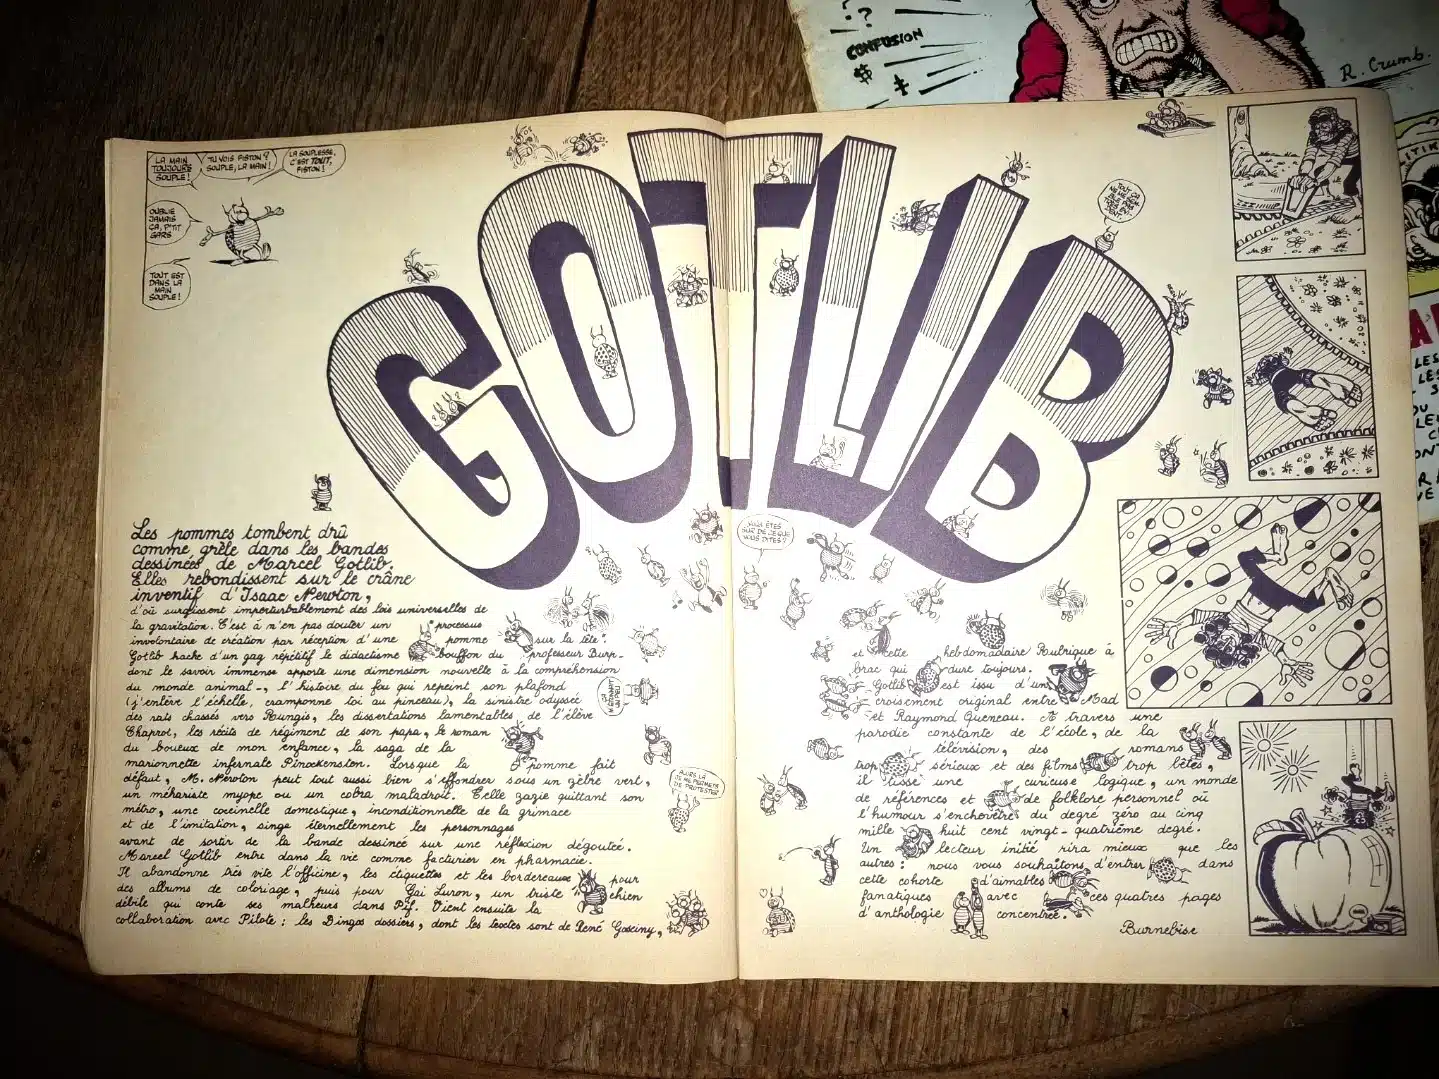 LA MAIN
TOUJOURS
SOUPLE!
TU VOIS PISTON?
SOUPLE, LA MAIN!
LA SOUPLESSE,
C'EST TOUT,
PISTON!
OUBLIE
JAMAIS
ÇA, P'TIT
GARS
TOUT EST
DANS LA
MAIN
SOUPLE!
GOTLIB
CONFUSION
R. Crumb.
Les pommes tombent drû
comme grêle dans les bandes
dessinées de Marcel Gotlib.
Elles rebondissent sur le crâne
inventif d'Isaac Newton,
d'où surgissent imperturbablement des lois universelles de
la gravitation. C'est à n'en pas douter un processus
involontaire de création par réception d'une pomme sur la tête.
Gotlib hache d'un gag répétitif le didactisme bouffon du professeur Burp-
dont le savoir immense apporte une dimension nouvelle à la compréhension
du monde animal-, l'histoire du fou qui repeint son plafond
(j'enlève l'échelle, cramponne toi au pinceau), la sinistre odyssée
des rats chassés vers Rungis, les dissertations lamentables de l'élève
Chaprot, les récits de régiment de son papa, le roman
du boueux de mon enfance, la saga de la
marionnette infernale Pinockenstein. Lorsque la pomme fait
défaut, M. Newton peut tout aussi bien s'effondrer sous un zèbre vert,
un méhariste myope ou un cobra maladroit. Telle zazie quittant son
métro, une coccinelle domestique, inconditionnelle de la grimace
et de l'imitation, singe éternellement les personnages
avant de sortir de la bande dessinée sur une réflexion dégoutée.
Marcel Gotlib entre dans la vie comme facturier en pharmacie.
Il abandonne très vite l'officine, les étiquettes et les bordereaux pour
des albums de coloriage, puis pour Gai Luron, un triste chien
débile qui conte ses malheurs dans Pif. Vient ensuite la
collaboration avec Pilote: les Dingos dossiers, dont les textes sont de René Gosciny,
ALORS LÀ
JE ME PERMETS
DE PROTESTER
VOUS ÊTES
SÛR DE CE QUE
VOUS DITES?
et cette hebdomadaire Rubrique à
brac qui dure toujours.
Gotlib est issu d'un
croisement original entre Mad
et Raymond Queneau. A travers une
parodie constante de l'école, de la
télévision, des romans
trop sérieux et des films trop bêtes,
il tisse une curieuse logique, un monde
de références et de folklore personnel où
l'humour s'enchevêtre du degré zéro au cinq
mille huit cent vingt-quatrième degré.
Un lecteur initié rira mieux que les
autres: nous vous souhaitons d'entrer dans
cette cohorte d'aimables
fanatiques avec ces quatres pages
d'anthologie concentrée.
Burnebise